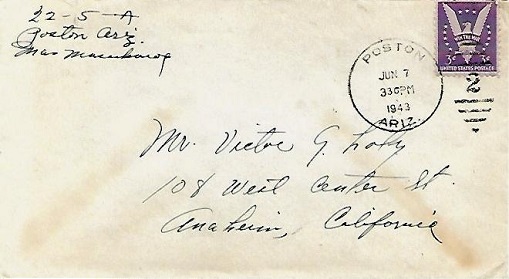 22-5-A
Poston Ariz.
Mas
POSTON
JUN 7
330PM
1943
ARIZ.
WIN THE WAR
3¢ 3¢
UNITED STATES POSTAGE
2
Mr. Victor G. Loly
108 West Center St.
Anaheim, California